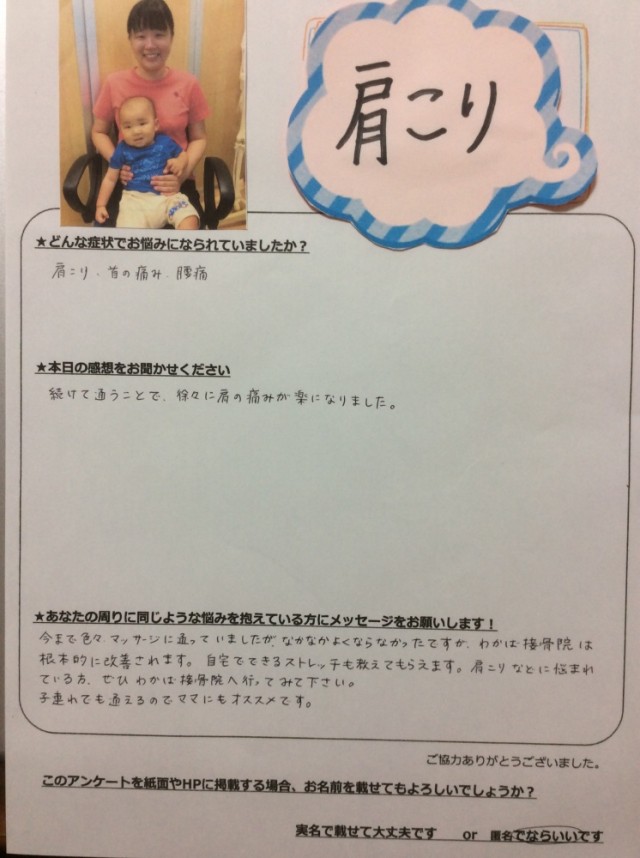 肩こり
★どんな症状でお悩みになられていましたか？
肩こり、首の痛み、腰痛
★本日の感想をお聞かせください
続けて通うことで、徐々に肩の痛みが楽になりました。
★あなたの周りに同じような悩みを抱えている方にメッセージをお願いします！
今まで色々、マッサージに通っていましたが、なかなかよくならなかったですが、わかば接骨院は
根本的に改善されます。自宅でできるストレッチも教えてもらえます。肩こりなどに悩まれ
ている方、ぜひわかば接骨院へ行ってみて下さい。
子連れでも通えるのでママにもオススメです。
ご協力ありがとうございました。
このアンケートを紙面やHPに掲載する場合、お名前を載せてもよろしいでしょうか？
実名で載せて大丈夫です　or　匿名でならいいです